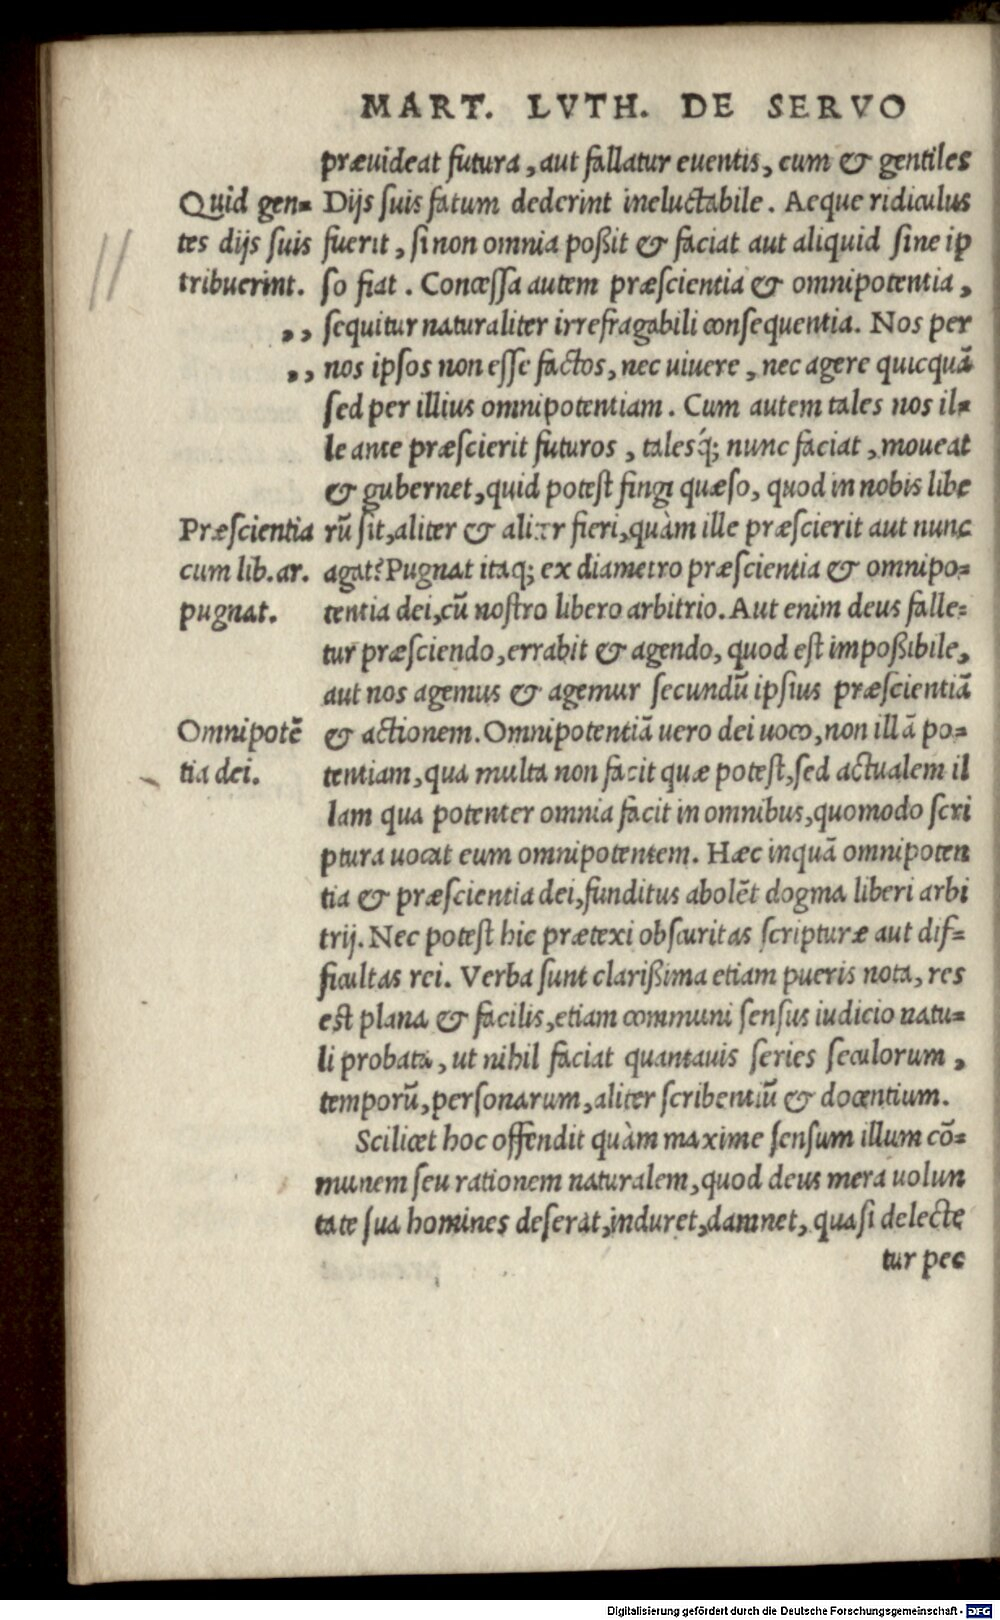 MART. LVTH. DE SERVO
præuideat futura, aut fallatur euentis, cum & gentiles
Quid gen= Dijs suis fatum dederint ineluctabile. Aeque ridiculus
tes dijs suis fuerit, si non omnia poßit & faciat aut aliquid sine ip
tribuerint. so fiat. Concessa autem præscientia & omnipotentia,
,, sequitur naturaliter irrefragabili consequentia. Nos per
,, nos ipsos non esse factos, nec uiuere, nec agere quicquā
sed per illius omnipotentiam. Cum autem tales nos il=
le ante præscierit futuros, talesq́; nunc faciat, moueat
& gubernet, quid potest fingi quæso, quod in nobis libe
Præscientia rū sit, aliter & aliter fieri, quàm ille præscierit aut nunc
cum lib. ar. agat? Pugnat itaq; ex diametro præscientia & omnipo=
pugnat. tentia dei, cū nostro libero arbitrio. Aut enim deus falle=
tur præsciendo, errabit & agendo, quod est impoßibile,
aut nos agemus & agemur secundū ipsius præscientiā
Omnipotē & actionem. Omnipotentiā uero dei uoco, non illā po=
tia dei. tentiam, qua multa non facit quæ potest, sed actualem il
lam qua potenter omnia facit in omnibus, quomodo scri
ptura uocat eum omnipotentem. Hæc inquā omnipoten
tia & præscientia dei, funditus abolēt dogma liberi arbi
trij. Nec potest hic prætexi obscuritas scripturæ aut dif=
ficultas rei. Verba sunt clarißima etiam pueris nota, res
est plana & facilis, etiam communi sensus iudicio natu=
li probata, ut nihil faciat quantauis series seculorum,
temporū, personarum, aliter scribentiū & docentium.
Scilicet hoc offendit quàm maxime sensum illum cō=
munem seu rationem naturalem, quod deus mera uolun
tate sua homines deserat, induret, damnet, quasi delecte
tur pec
Digitalisierung gefördert durch die Deutsche Forschungsgemeinschaft - DFG